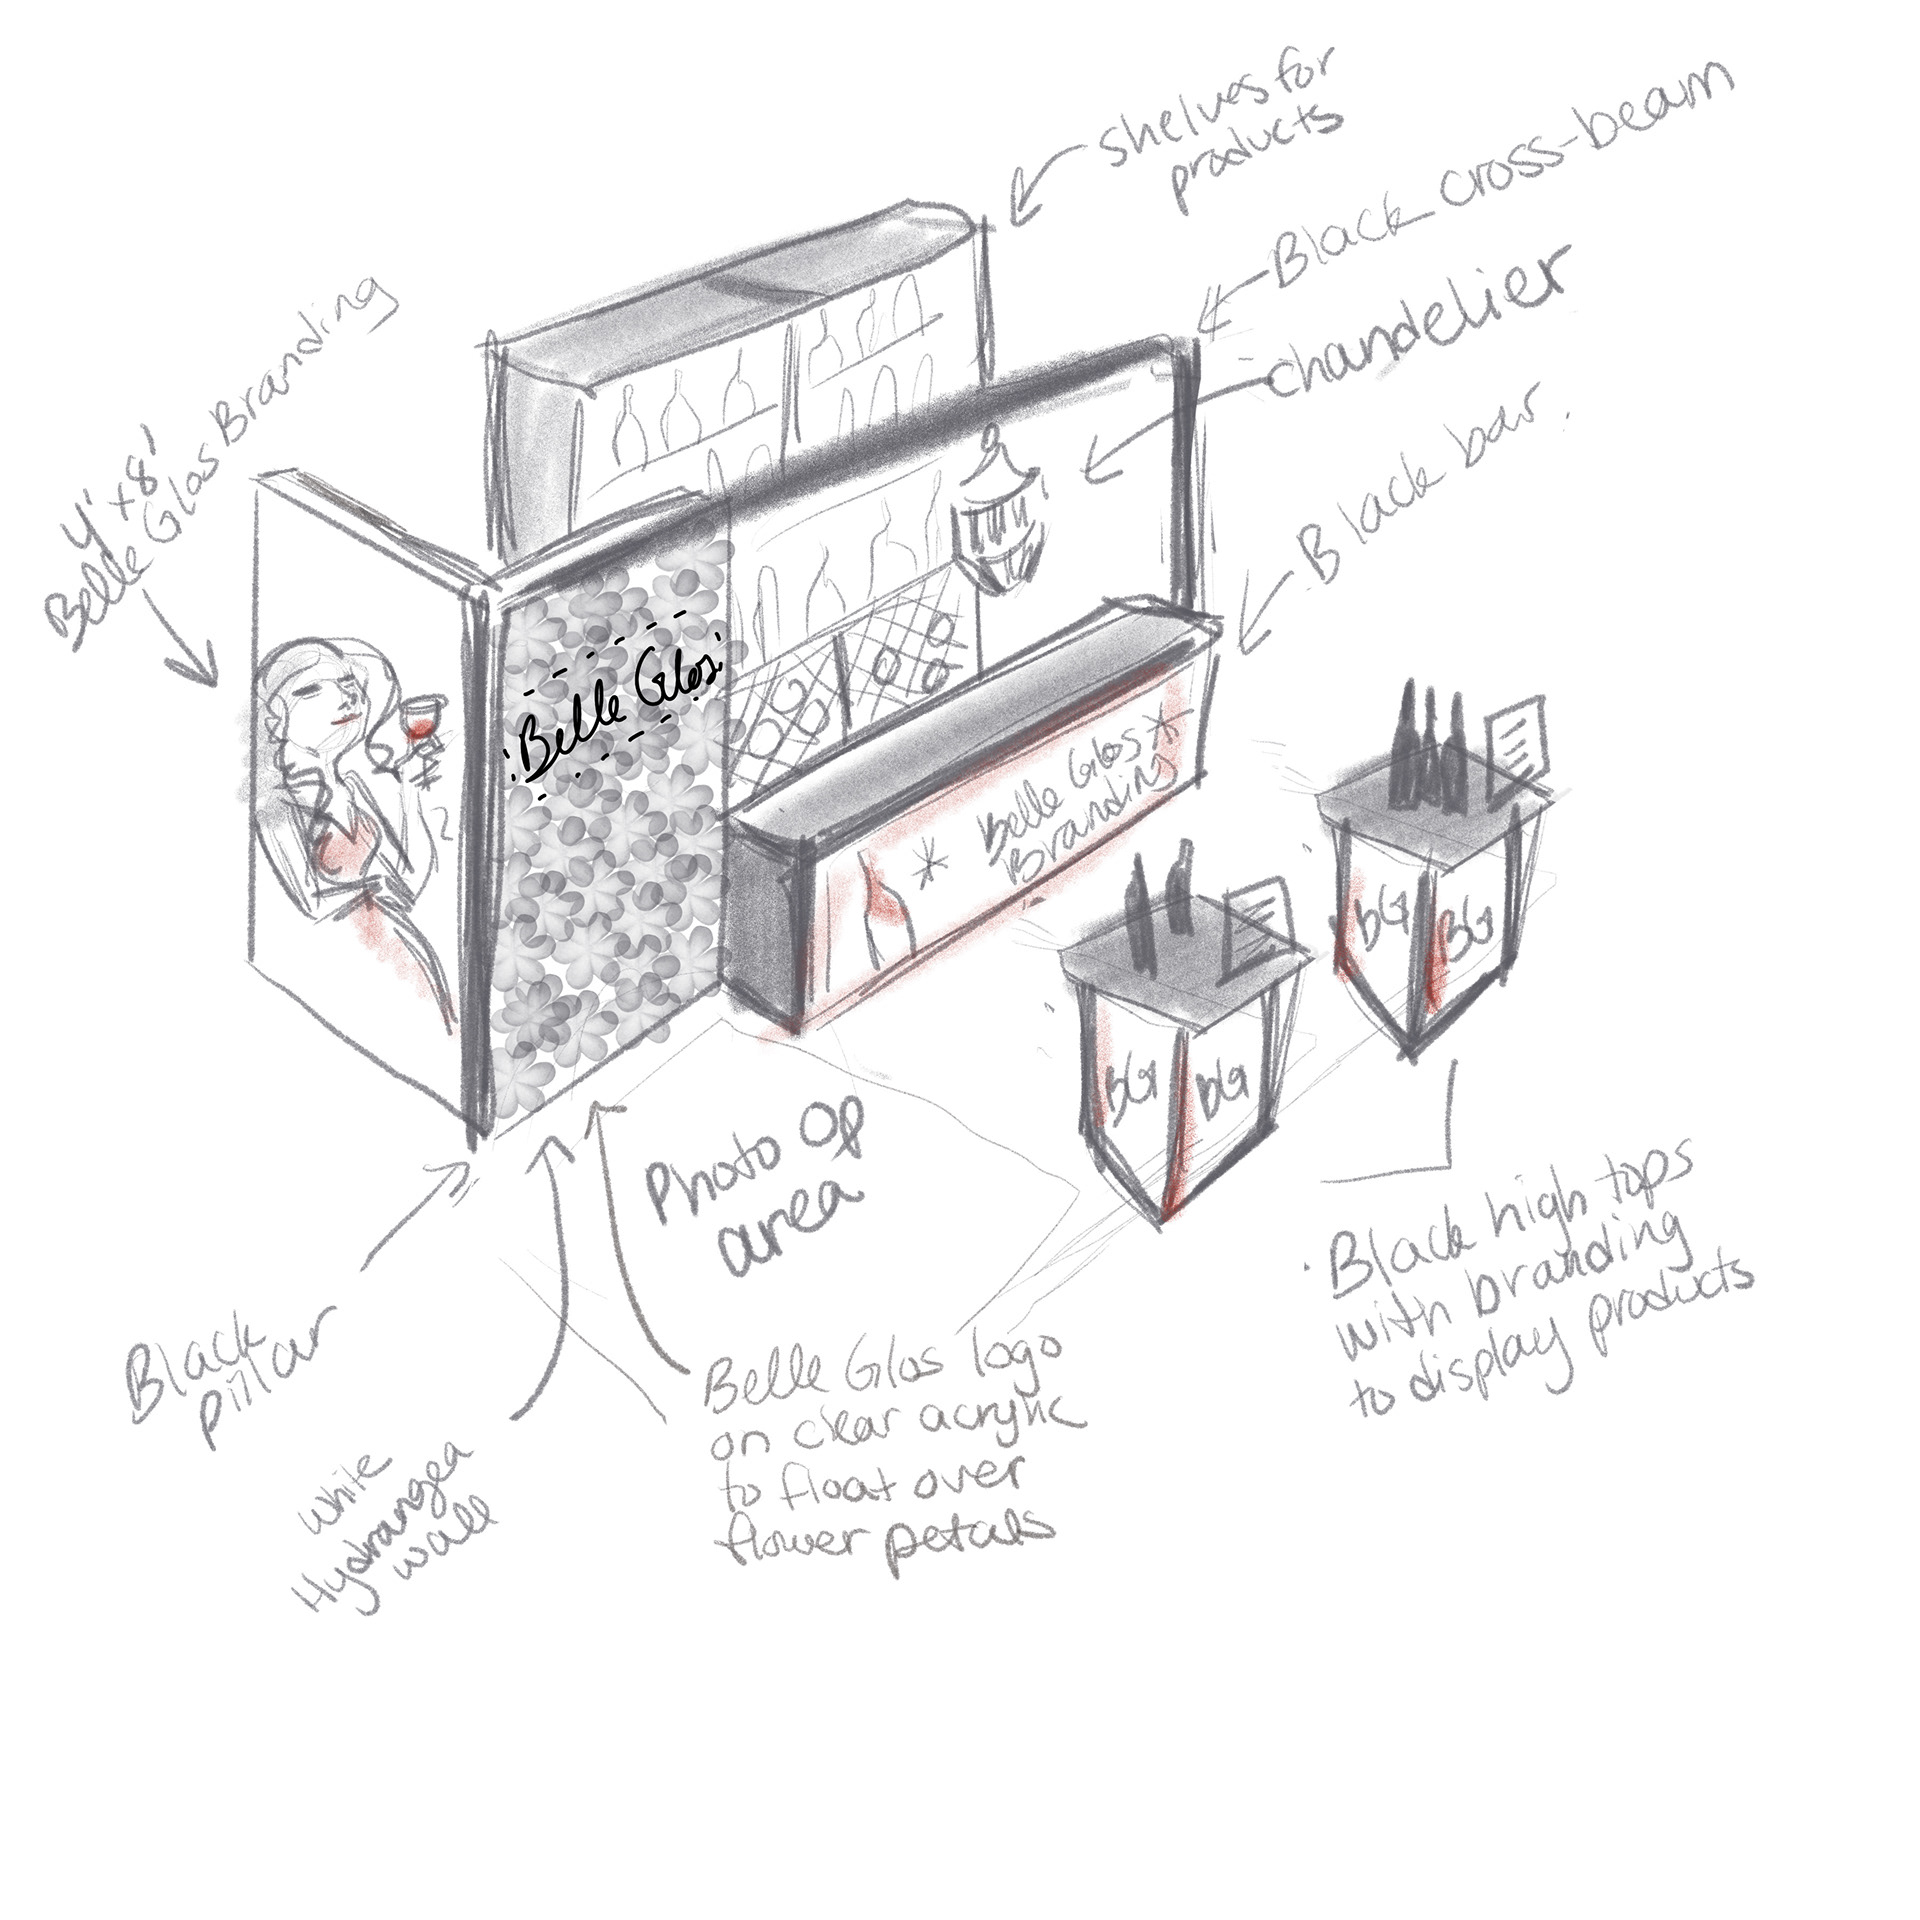 shelves for
products
Black cross-beam
chandelier
Black bar.
4' x 8'
Belle Glos Branding
Belle Glos
Belle Glos
Branding
BG
BG
BG
BG
Photo Op
area
Black
pillar
White
Hydrangea
wall
Belle Glos logo
on clear acrylic
to float over
flower petals
• Black high tops
with branding
to display products